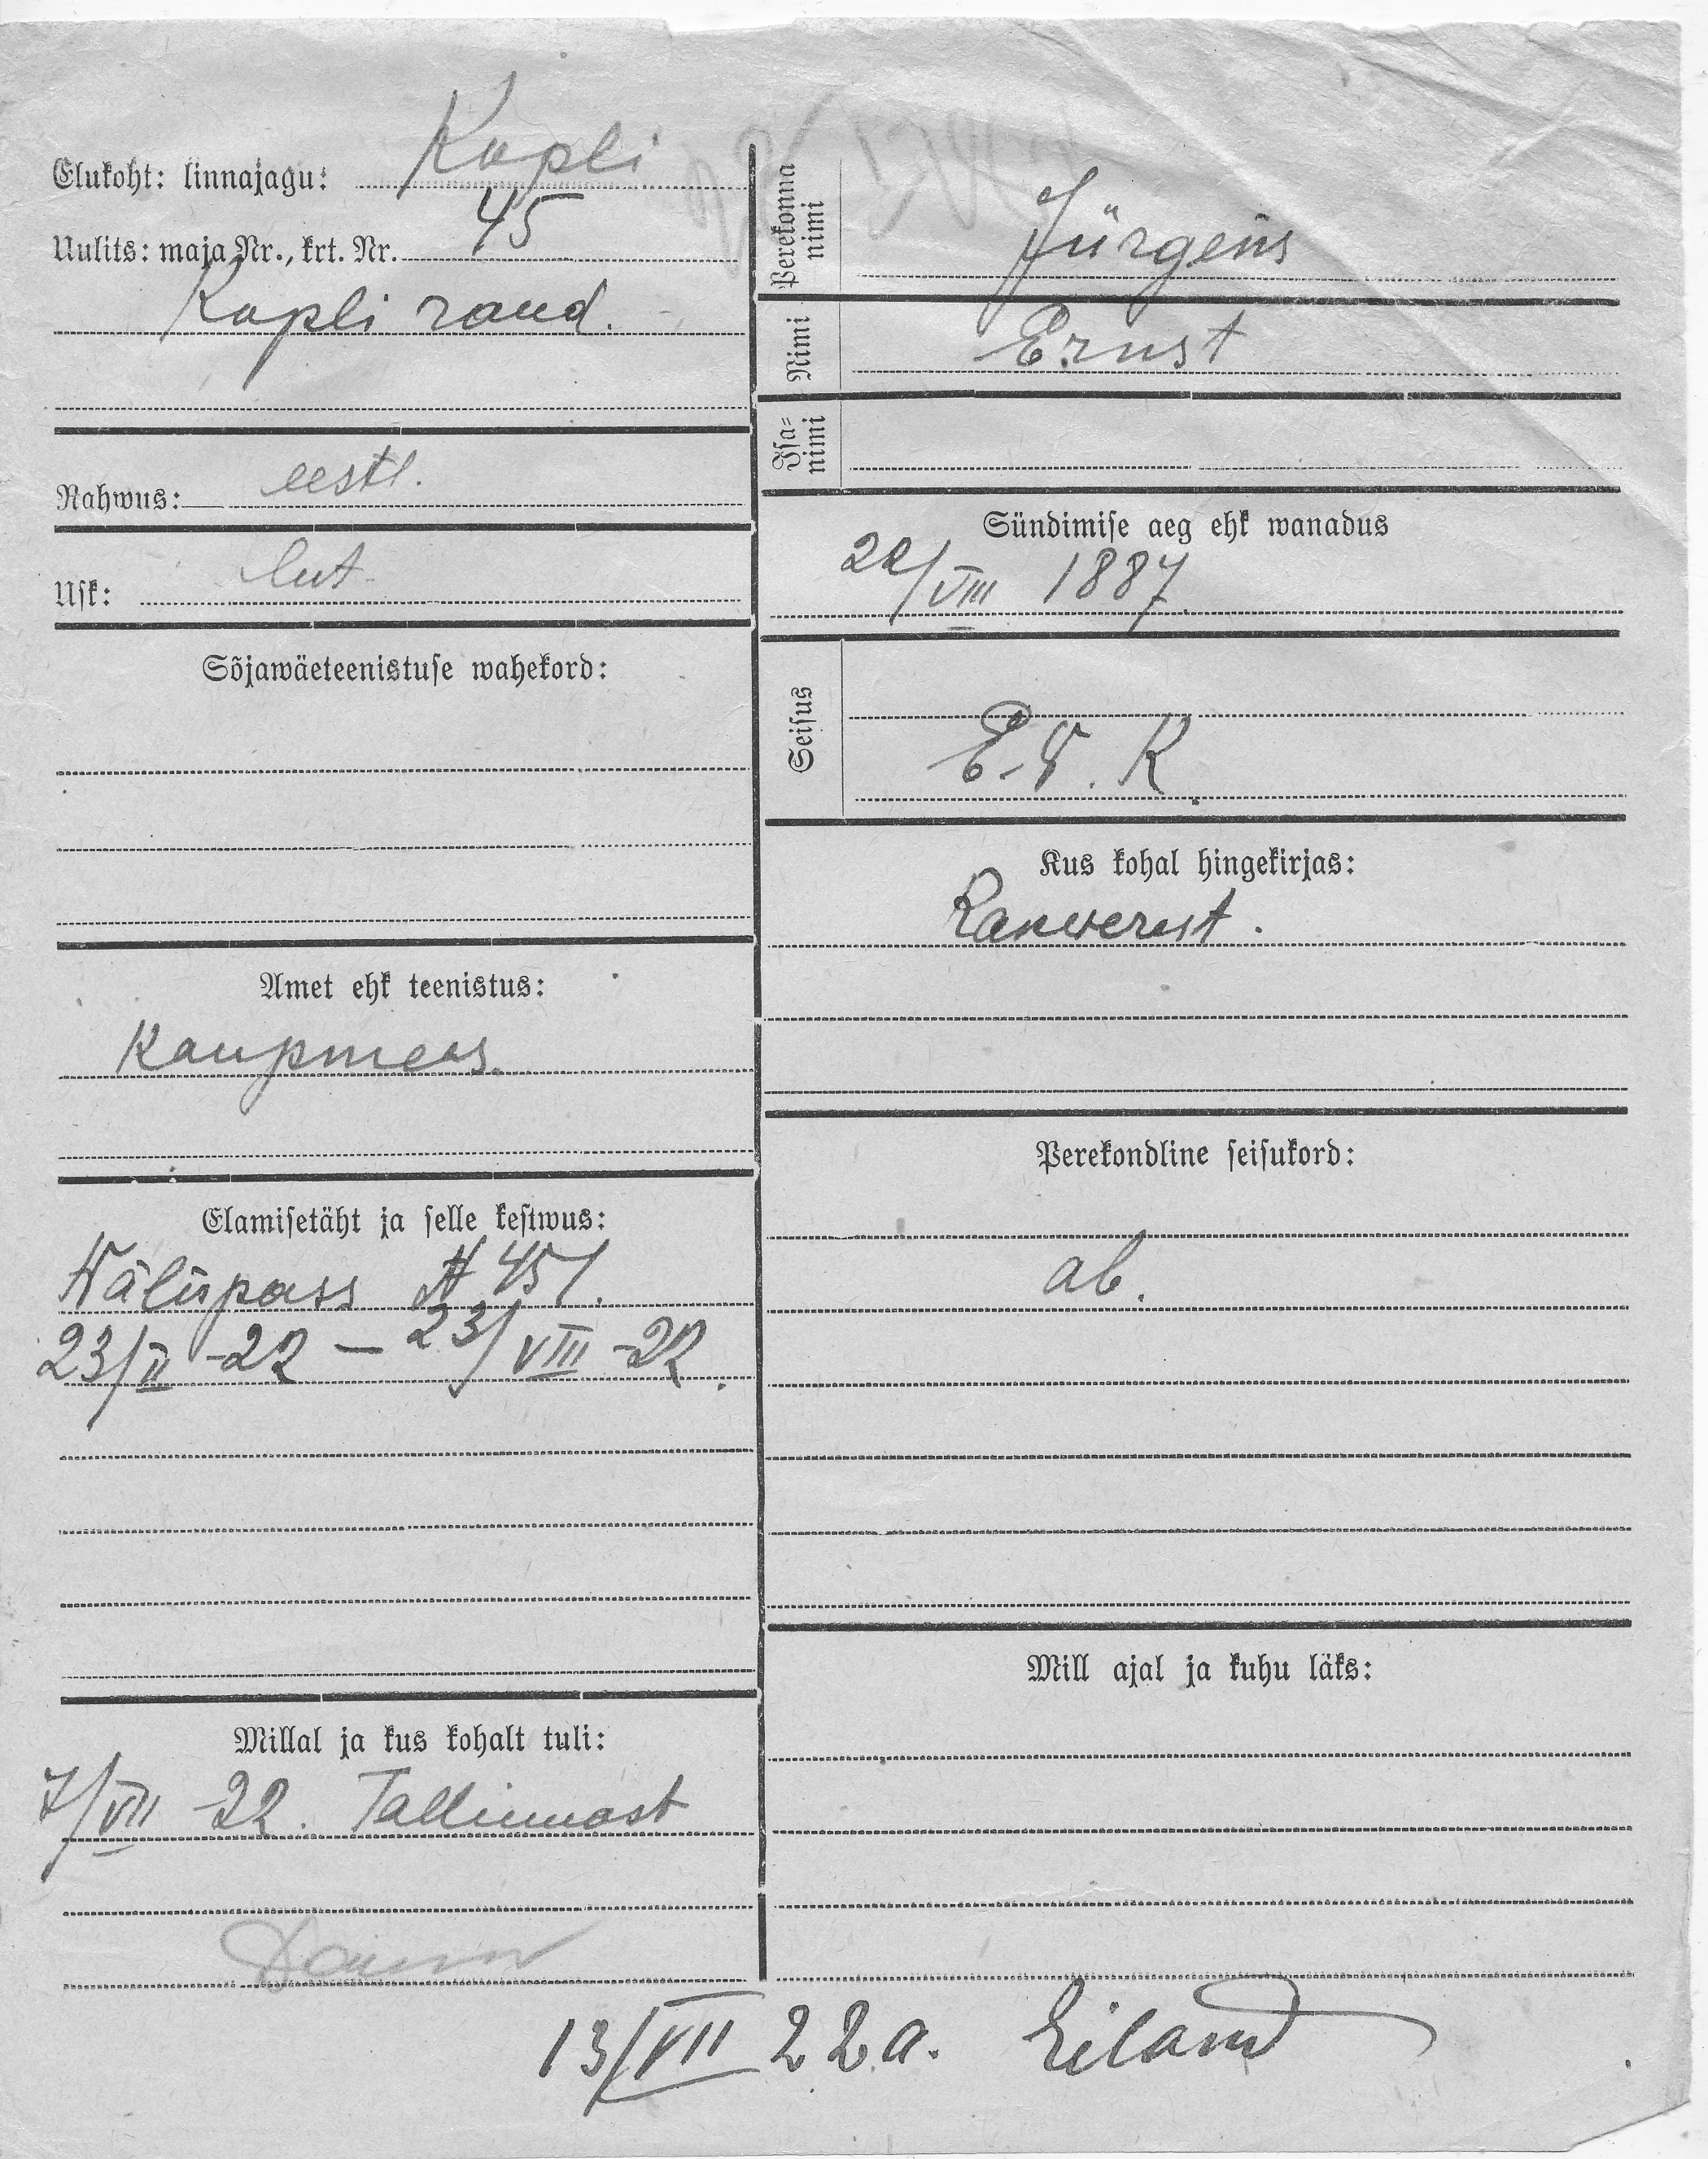 Elukoht: linnajagu: Kopli
Uulits: maja Nr., krt. Nr. 45
Kopli rand.
Rahwus: eestl.
Usk: lut.
Sõjawäeteenistuse wahekord:
Amet ehk teenistus:
Kaupmees.
Elamisetäht ja selle kestwus:
Wälispass № 451.
23/II -22 – 23/VIII -22.
Millal ja kus kohalt tuli:
7/VII -22. Tallinnast
Perekonna nimi Jürgens
Nimi Ernst
Isa-nimi
Sündimise aeg ehk wanadus
/VIII 1887
Seisus
E. V. K.
Kus kohal hingekirjas:
Rakwerest.
Perekondline seisukord:
ab.
Mill ajal ja kuhu läks:
13/VII 22 a. Eiland